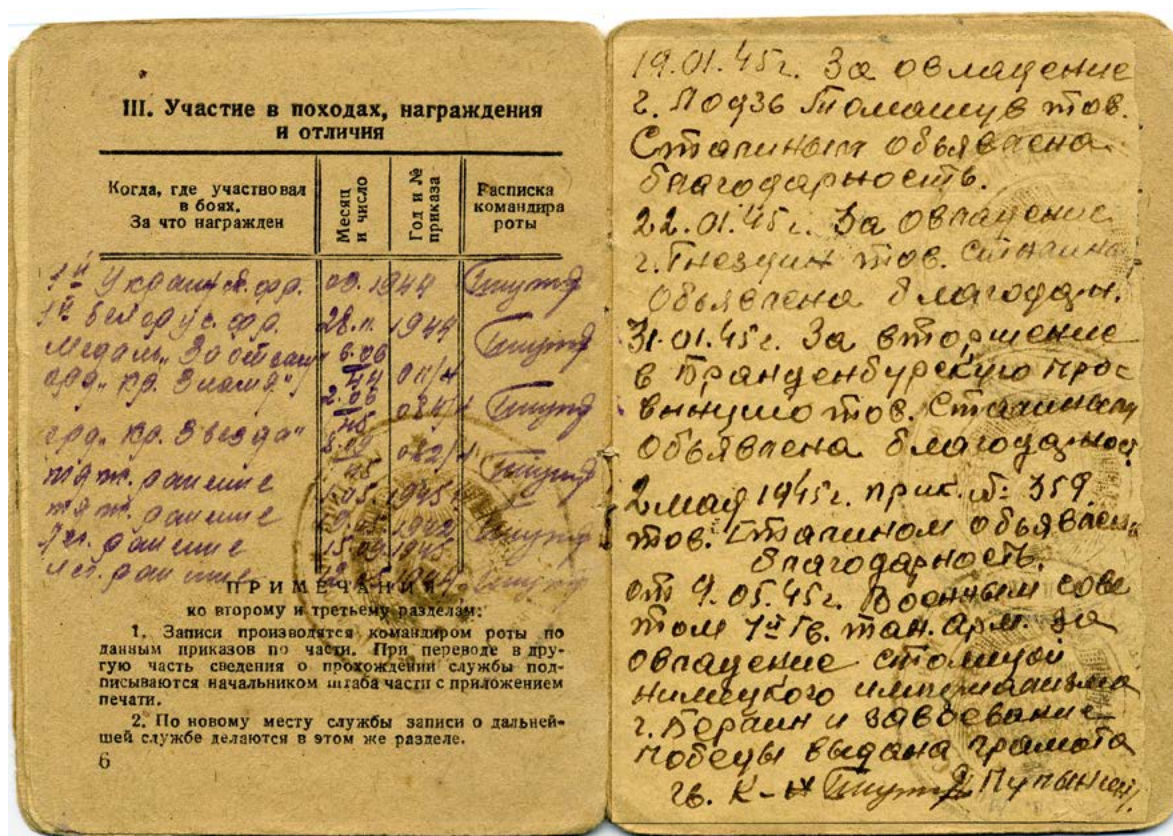 III. Участие в походах, награждения
и отличия
Когда, где участвовал
в боях.
За что награжден
Месяц
и число
Год и №
приказа
Расписка
командира
роты
1й Украинск. фр. 09. 1944
1й белорус. фр. 28.11. 1944
Медаль „За отвагу“ 6.06
44 011/н
орд. „Кр. Знамя“ 2.06
45
орд. „Кр. Звезда“
тяж. ранение 05. 1945
тяж. ранение 1942
лег. ранение 15.04 1945
лег. ранение
ПРИМЕЧАНИЯ
ко второму и третьему разделам:
1. Записи производятся командиром роты по
данным приказов по части. При переводе в дру-
гую часть сведения о прохождении службы под-
писываются начальником штаба части с приложением
печати.
2. По новому месту службы записи о дальней-
шей службе делаются в этом же разделе.
6
19.01.45г. За овладение
г. Лодзь Томашув тов.
Сталиным объявлена
благодарность.
22.01.45г. За овладение
г. Гнездин тов. Сталиным
объявлена благодарн.
31.01.45г. За вторжение
в Бранденбургскую про-
винцию тов. Сталиным
объявлена благодарност
2 мая 1945г. прик. №: 359
тов. Сталином объявлен
благодарность.
от 9.05.45г. Военным сове
том 1й Гв. тан. арм. за
овладение столицой
нимецкого империализма
г. Берлин и завоевание
победы выдана грамота
гв. к-н